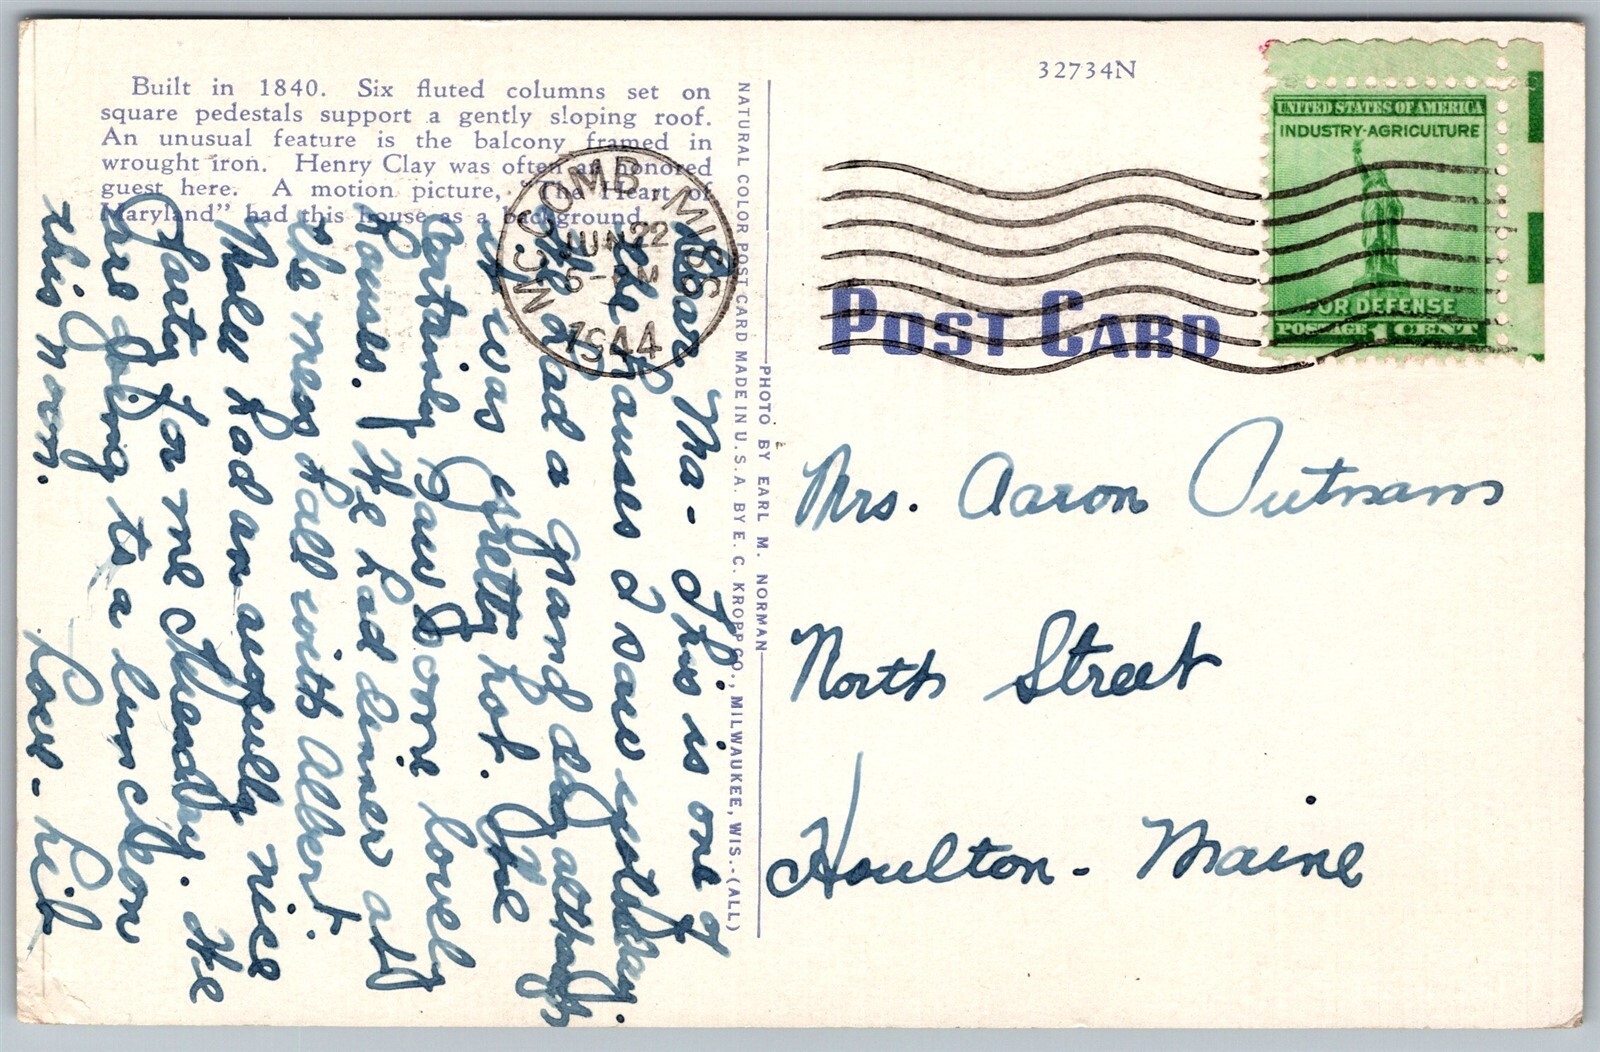 Built in 1840. Six fluted columns set on
square pedestals support a gently sloping roof.
An unusual feature is the balcony framed in
wrought iron. Henry Clay was often an honored
guest here. A motion picture, "The Heart of
Maryland" had this house as a background.
Dear Ma - This is one of
the houses I saw yesterday.
We had a grand day although
it was pretty hot. We
certainly saw some lovely
houses. We had dinner at
the mess hall with Albert.
Nell had an awfully nice
party for me Tuesday. We
are going to a luncheon
this noon.
Love - Lib
NATURAL COLOR POST CARD MADE IN U. S. A. BY E. C. KROPP CO., MILWAUKEE, WIS.-(ALL)
PHOTO BY EARL M. NORMAN
McCOMB, MISS
JUN 22
6-PM
1944
32734N
UNITED STATES OF AMERICA
INDUSTRY-AGRICULTURE
FOR DEFENSE
POSTAGE 1 CENT
POST CARD
Mrs. Aaron Putnam
North Street
Houlton - Maine